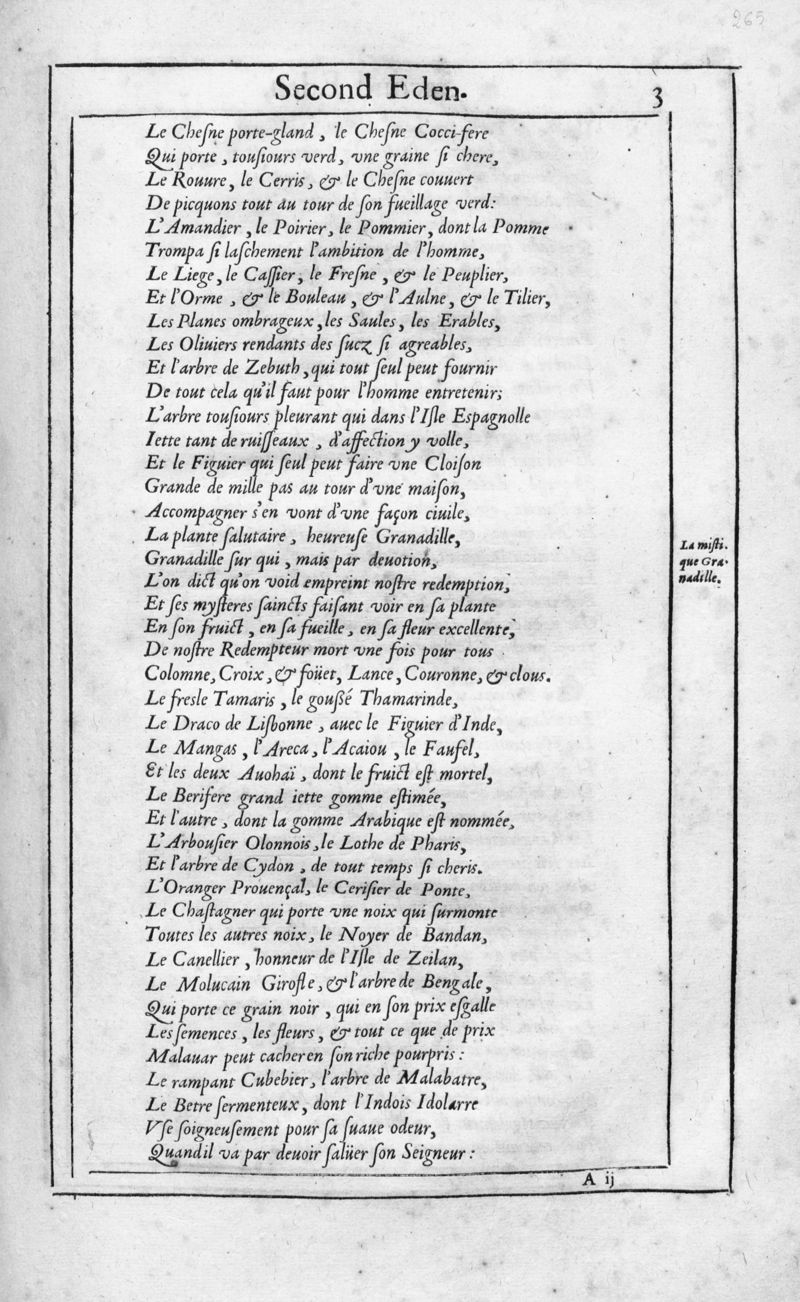 265
Second Eden. 3
Le Cheſne porte-gland, le Cheſne Cocci-fere
Qui porte, touſiours verd, vne graine ſi chere,
Le Rouure, le Cerris, & le Cheſne couuert
De picquons tout au tour de ſon fueillage verd:
L'Amandier, le Poirier, le Pommier, dont la Pomme
Trompa ſi laſchement l'ambition de l'homme,
Le Liege, le Caſſier, le Freſne, & le Peuplier,
Et l'Orme, & le Bouleau, & l'Aulne, & le Tilier,
Les Planes ombrageux, les Saules, les Erables,
Les Oliuiers rendants des ſucz ſi agreables,
Et l'arbre de Zebuth, qui tout ſeul peut fournir
De tout cela qu'il faut pour l'homme entretenir;
L'arbre touſiours pleurant qui dans l'Iſle Eſpagnolle
Iette tant de ruiſſeaux, d'affection y volle,
Et le Figuier qui ſeul peut faire vne Cloiſon
Grande de mille pas au tour d'vne maiſon,
Accompagner s'en vont d'vne façon ciuile,
La plante ſalutaire, heureuſe Granadille,
Granadille ſur qui, mais par deuotion,
L'on dict qu'on void empreint noſtre redemption,
Et ſes myſteres ſaincts faiſant voir en ſa plante
En ſon fruict, en ſa fueille, en ſa fleur excellente,
De noſtre Redempteur mort vne fois pour tous
Colomne, Croix, & foüet, Lance, Couronne, & clous.
Le freſle Tamaris, le gouſſé Thamarinde,
Le Draco de Liſbonne, auec le Figuier d'Inde,
Le Mangas, l'Areca, l'Acaiou, le Faufel,
Et les deux Auohaï, dont le fruict eſt mortel,
Le Berifere grand iette gomme eſtimée,
Et l'autre, dont la gomme Arabique eſt nommée,
L'Arbouſier Olonnois, le Lothe de Pharis,
Et l'arbre de Cydon, de tout temps ſi cheris.
L'Oranger Prouençal, le Ceriſier de Ponte,
Le Chaſtagner qui porte vne noix qui ſurmonte
Toutes les autres noix, le Noyer de Bandan,
Le Canellier, honneur de l'Iſle de Zeilan,
Le Molucain Girofle, & l'arbre de Bengale,
Qui porte ce grain noir, qui en ſon prix eſgalle
Les ſemences, les fleurs, & tout ce que de prix
Malauar peut cacher en ſon riche pourpris:
Le rampant Cubebier, l'arbre de Malabatre,
Le Betre ſermenteux, dont l'Indois Idolatre
Vſe ſoigneuſement pour ſa ſuaue odeur,
Quand il va par deuoir ſalüer ſon Seigneur:
La miſti-
que Gra-
nadille.
A ij